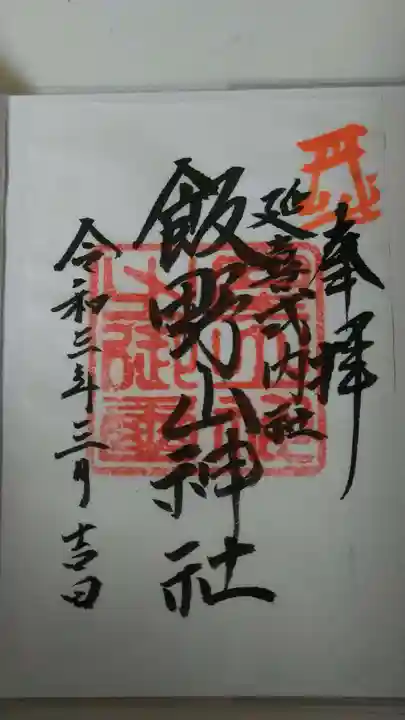 奉拝
延喜式内社
飯野山神社
令和三年三月吉日